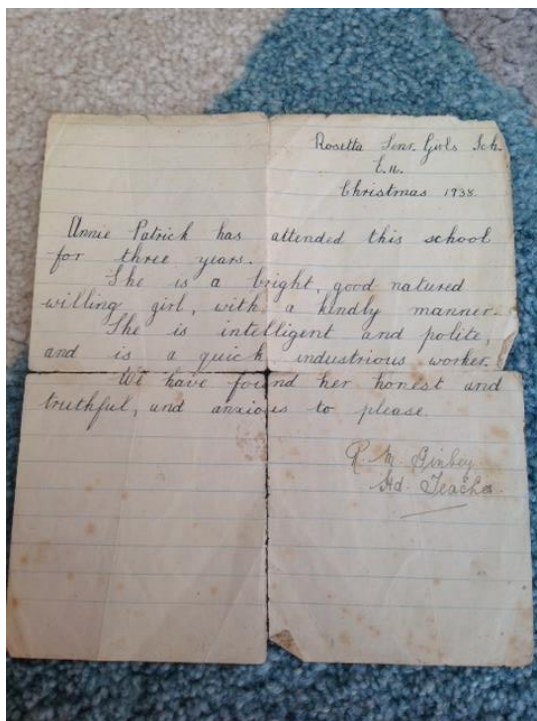 Rosetta Senr. Girls Sch.
E.16.
Christmas 1938.
Annie Patrick has attended this school
for three years.
She is a bright, good natured
willing girl, with a kindly manner.
She is intelligent and polite,
and is a quick industrious worker.
We have found her honest and
truthful, and anxious to please.
R. M.
Hd Teacher